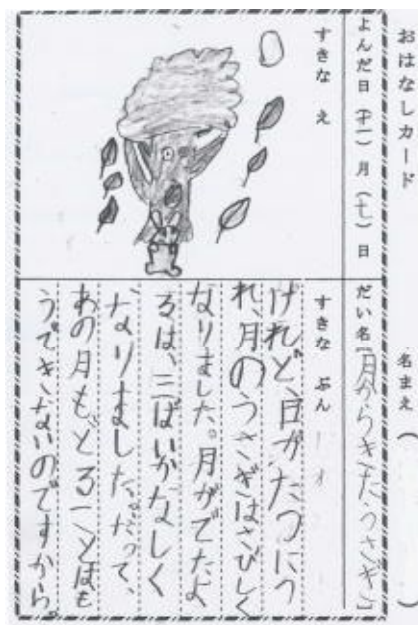 おはなしカード 名まえ（ ）
よんだ日（十一）月（七）日 だい名［月からきたうさぎ］
すきな え
すきな ぶん
けれど、日がたつにつ
れ、月のうさぎはさびしく
なりました。月がでたよ
るは、三ばいかなしく
なりました。だって、
あの月もどることはも
うできないのですから。